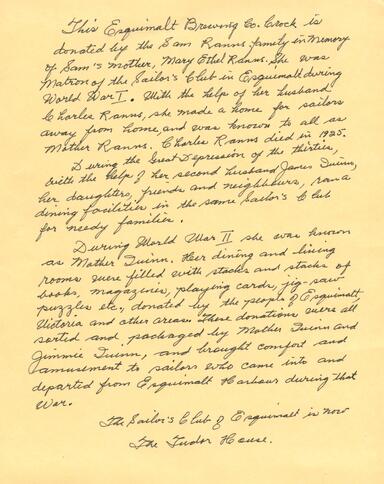 This Esquimalt Brewing Co. Crock is
donated by the Sam Ranns family in Memory
of Sam's Mother, Mary Ethel Ranns. She was
Matron of the Sailor's Club in Esquimalt during
World War I. With the help of her husband
Charles Ranns, she made a home for sailors
away from home, and was known to all as
Mother Ranns. Charles Ranns died in 1925.
During the Great Depression of the thirties,
with the help of her second husband James Quinn,
her daughters, friends and neighbours, ran a
dining facilities in the same Sailor's Club
for needy families.
During World War II she was known
as Mother Quinn. Her dining and living
rooms were filled with stacks and stacks of
books, magazines, playing cards, jig-saw
puzzles etc., donated by the people of Esquimalt,
Victoria and other areas. These donations were all
sorted and packaged by Mother Quinn and
Jimmie Quinn, and brought comfort and
amusement to sailors who came into and
departed from Esquimalt Harbour during that
War.
The Sailor's Club of Esquimalt is now
The Tudor House.